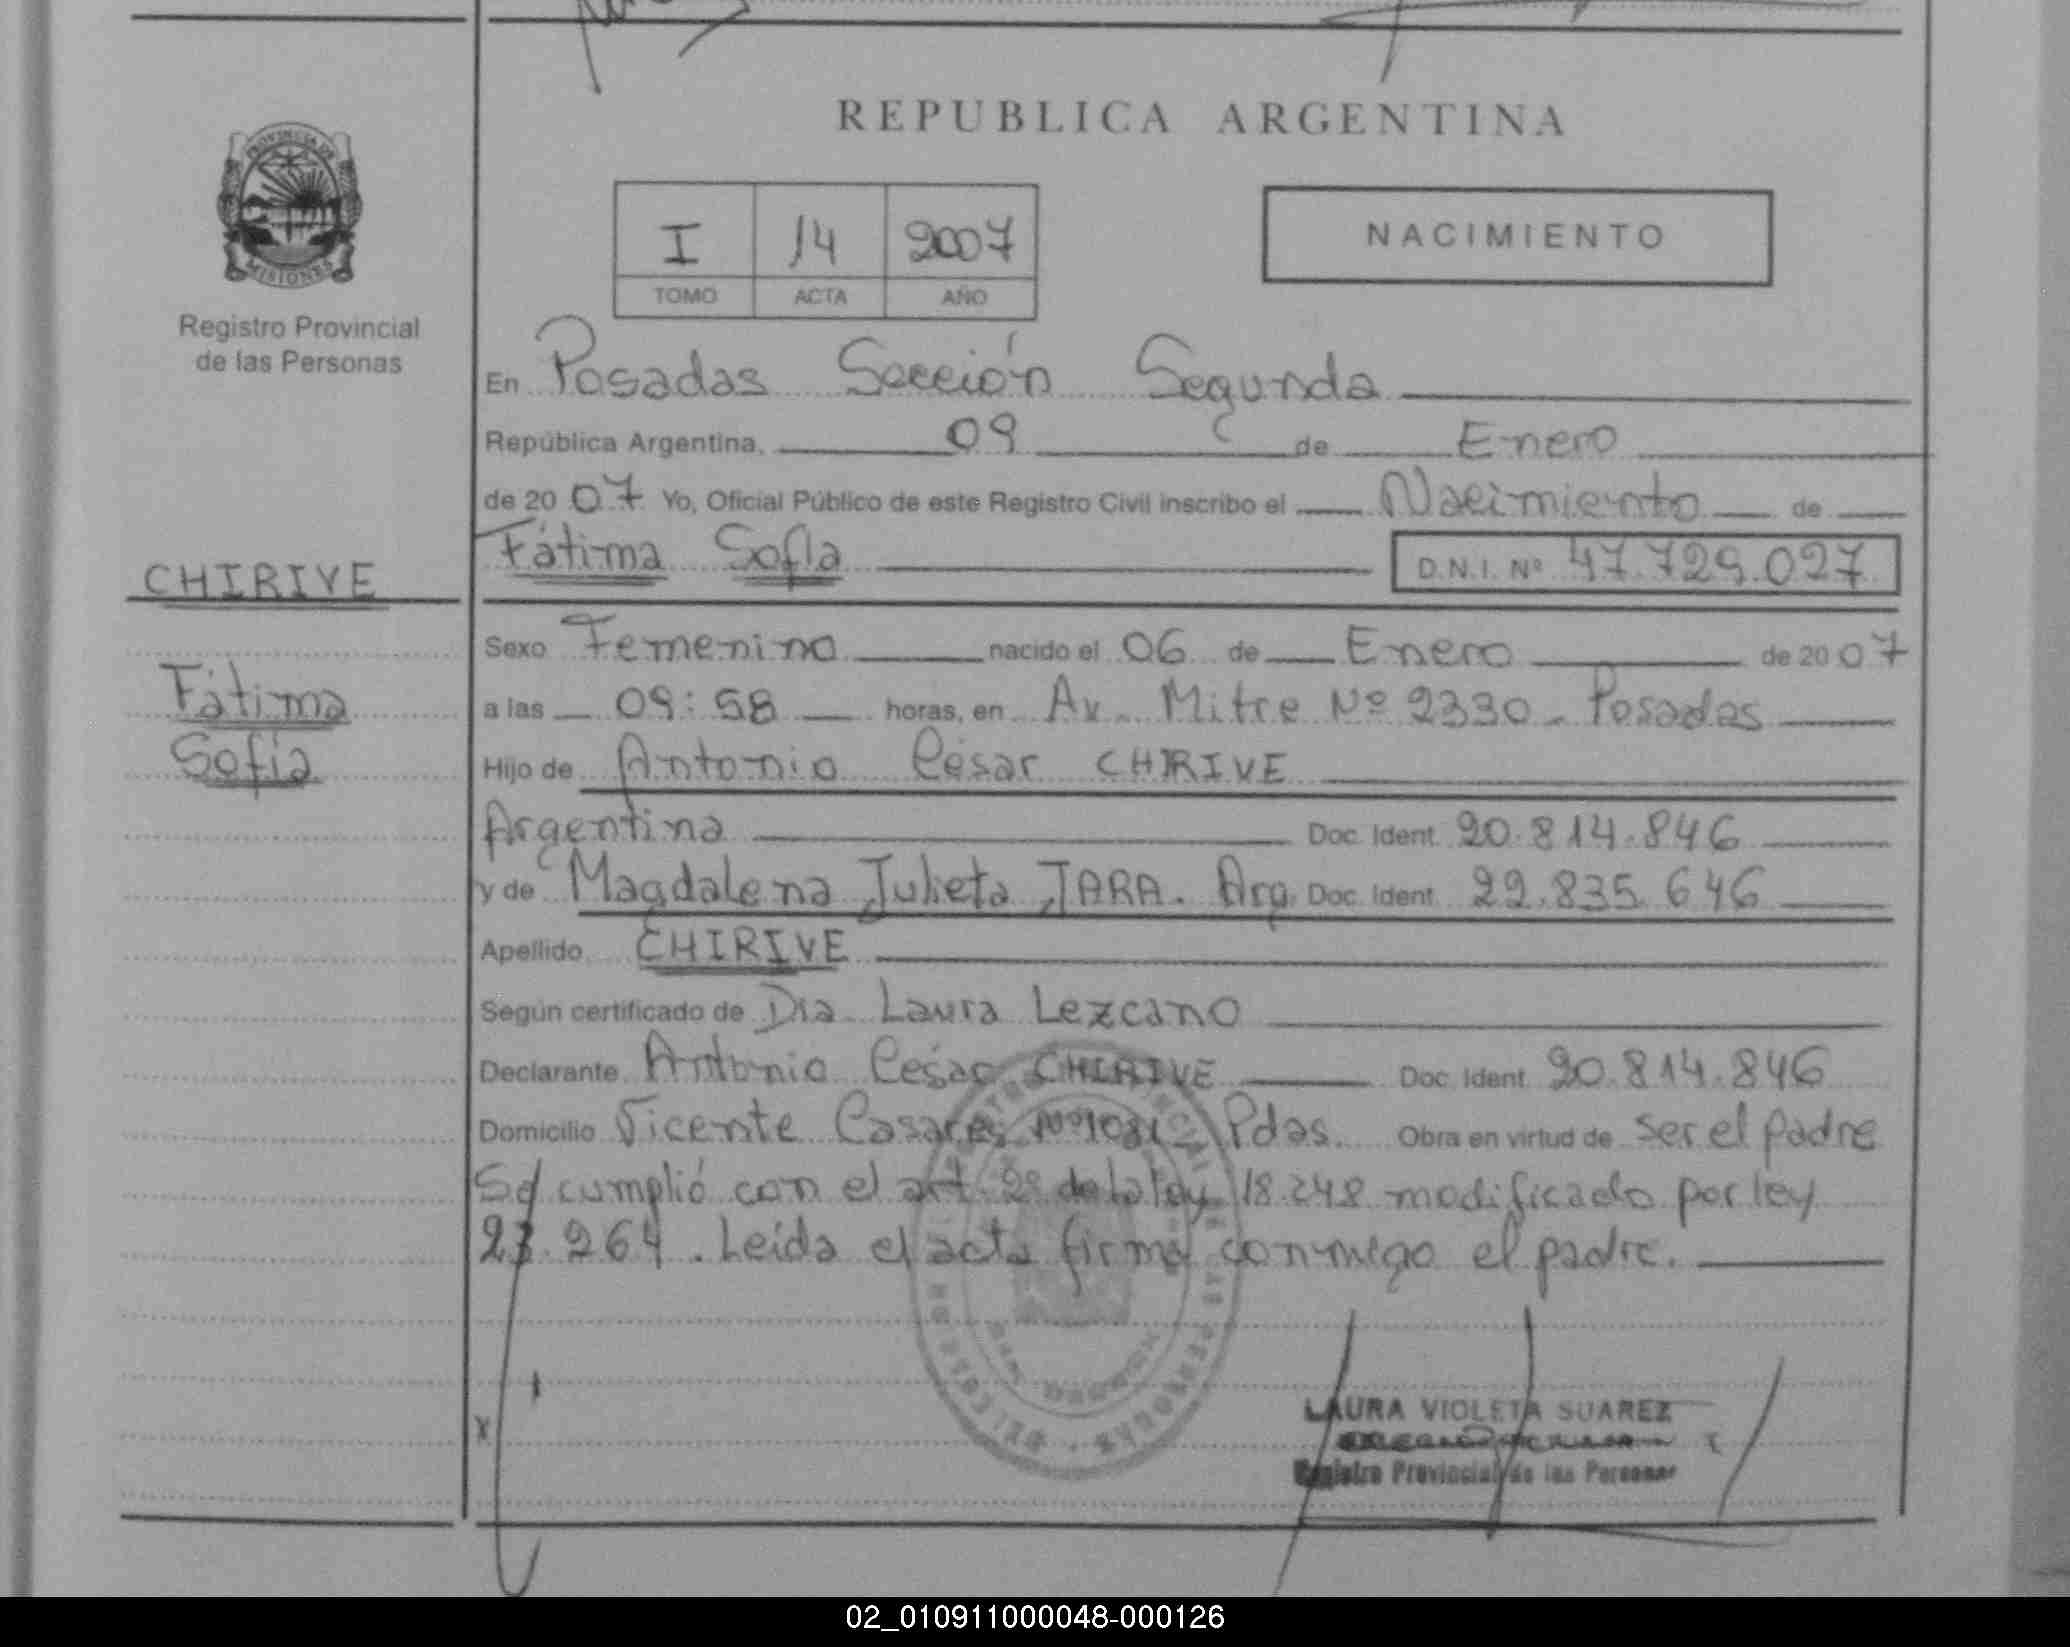 REPUBLICA ARGENTINA
PROVINCIA DE
MISIONES
Registro Provincial
de las Personas
I 14 2007
TOMO ACTA AÑO
NACIMIENTO
En Posadas Sección Segunda
República Argentina, 09 de Enero
de 2007 Yo, Oficial Público de este Registro Civil inscribo el Nacimiento de
Fátima Sofía D.N.I. Nº 47.729.027
CHIRIVE
Fátima
Sofía
Sexo Femenino nacido el 06 de Enero de 2007
a las 09:58 horas, en Av. Mitre Nº 2330 - Posadas
Hijo de Antonio César CHIRIVE
Argentina Doc. Ident. 20.814.846
y de Magdalena Julieta JARA. Arg. Doc. Ident. 22.835.646
Apellido CHIRIVE
Según certificado de Dra Laura Lezcano
Declarante Antonio César CHIRIVE Doc. Ident. 20.814.846
Domicilio Vicente Casares Pdas. Obra en virtud de ser el padre
Se cumplió con el art. 2º de la ley 18.248 modificado por ley
23.264. Leída el acta firma conmigo el padre.
LAURA VIOLETA SUAREZ
Registro Provincial de las Personas
02_010911000048-000126